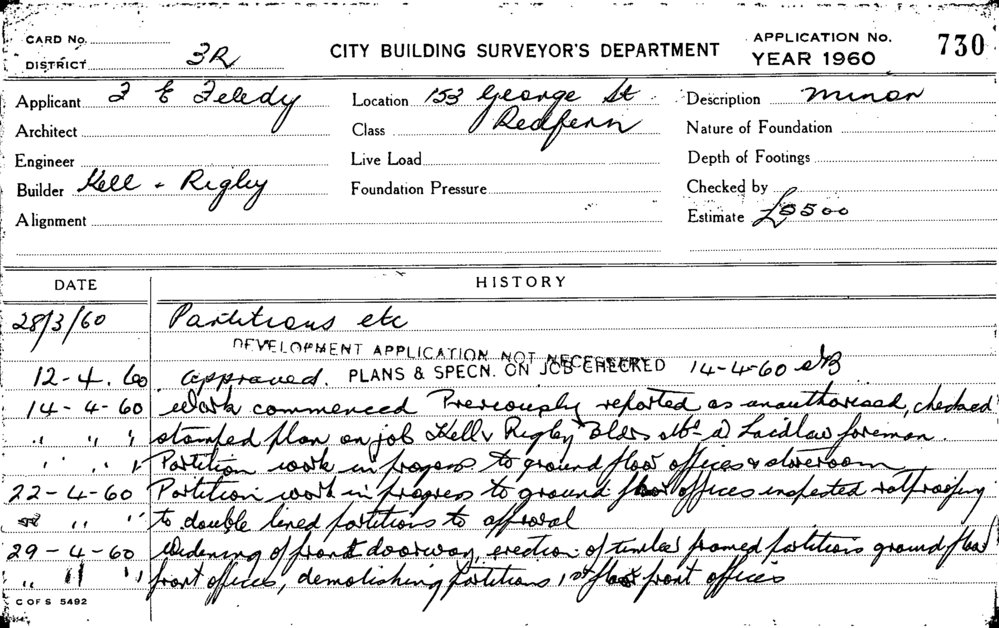 CARD No.
DISTRICT 3R
CITY BUILDING SURVEYOR'S DEPARTMENT
APPLICATION No.
YEAR 1960
730
Applicant F E Feledy
Location 153 George St
Redfern
Description minor
Architect
Class
Nature of Foundation
Engineer
Live Load
Depth of Footings
Builder Kell + Rigby
Foundation Pressure
Checked by
Alignment
Estimate £5500
DATE HISTORY
28/3/60 Partitions etc
DEVELOPMENT APPLICATION NOT NECESSERED
12-4.60 approved. PLANS & SPECN. ON JOB CHECKED 14-4-60
14-4-60 work commenced Previously reported as unauthorised, checked
" " " stamped plan on job Kell & Rigby Bldrs Mr A Laidlaw foreman.
" " " Partition work in progess to ground floor offices & storeroom
22-4-60 Partition work in progress to ground floor offices inspected ratproofing
" " " to double lined partitions to approval
29-4-60 Widening of front doorway, erection of timber framed partitions ground floor
" " " front offices, demolishing partitions 1st floor front offices
C OF S 5492